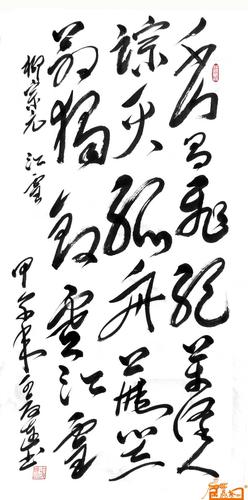 千山鸟飞絕萬徑人
踪灭孤舟蓑笠
翁獨釣寒江雪
柳宗元 江雪 甲午年
书